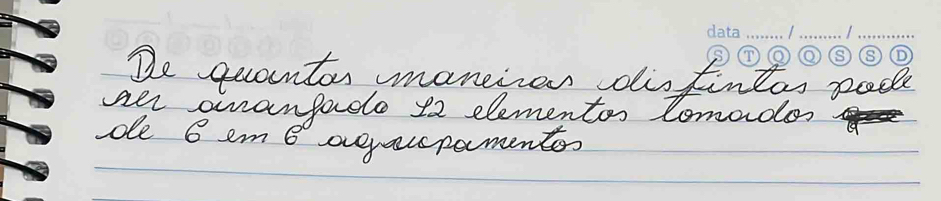 data ......... / ......... / ............
S T Q Q S S D
De quantas maneiras distintas pode
ser arranjado 12 elementos tomados
de 6 em 6 agrupamentos